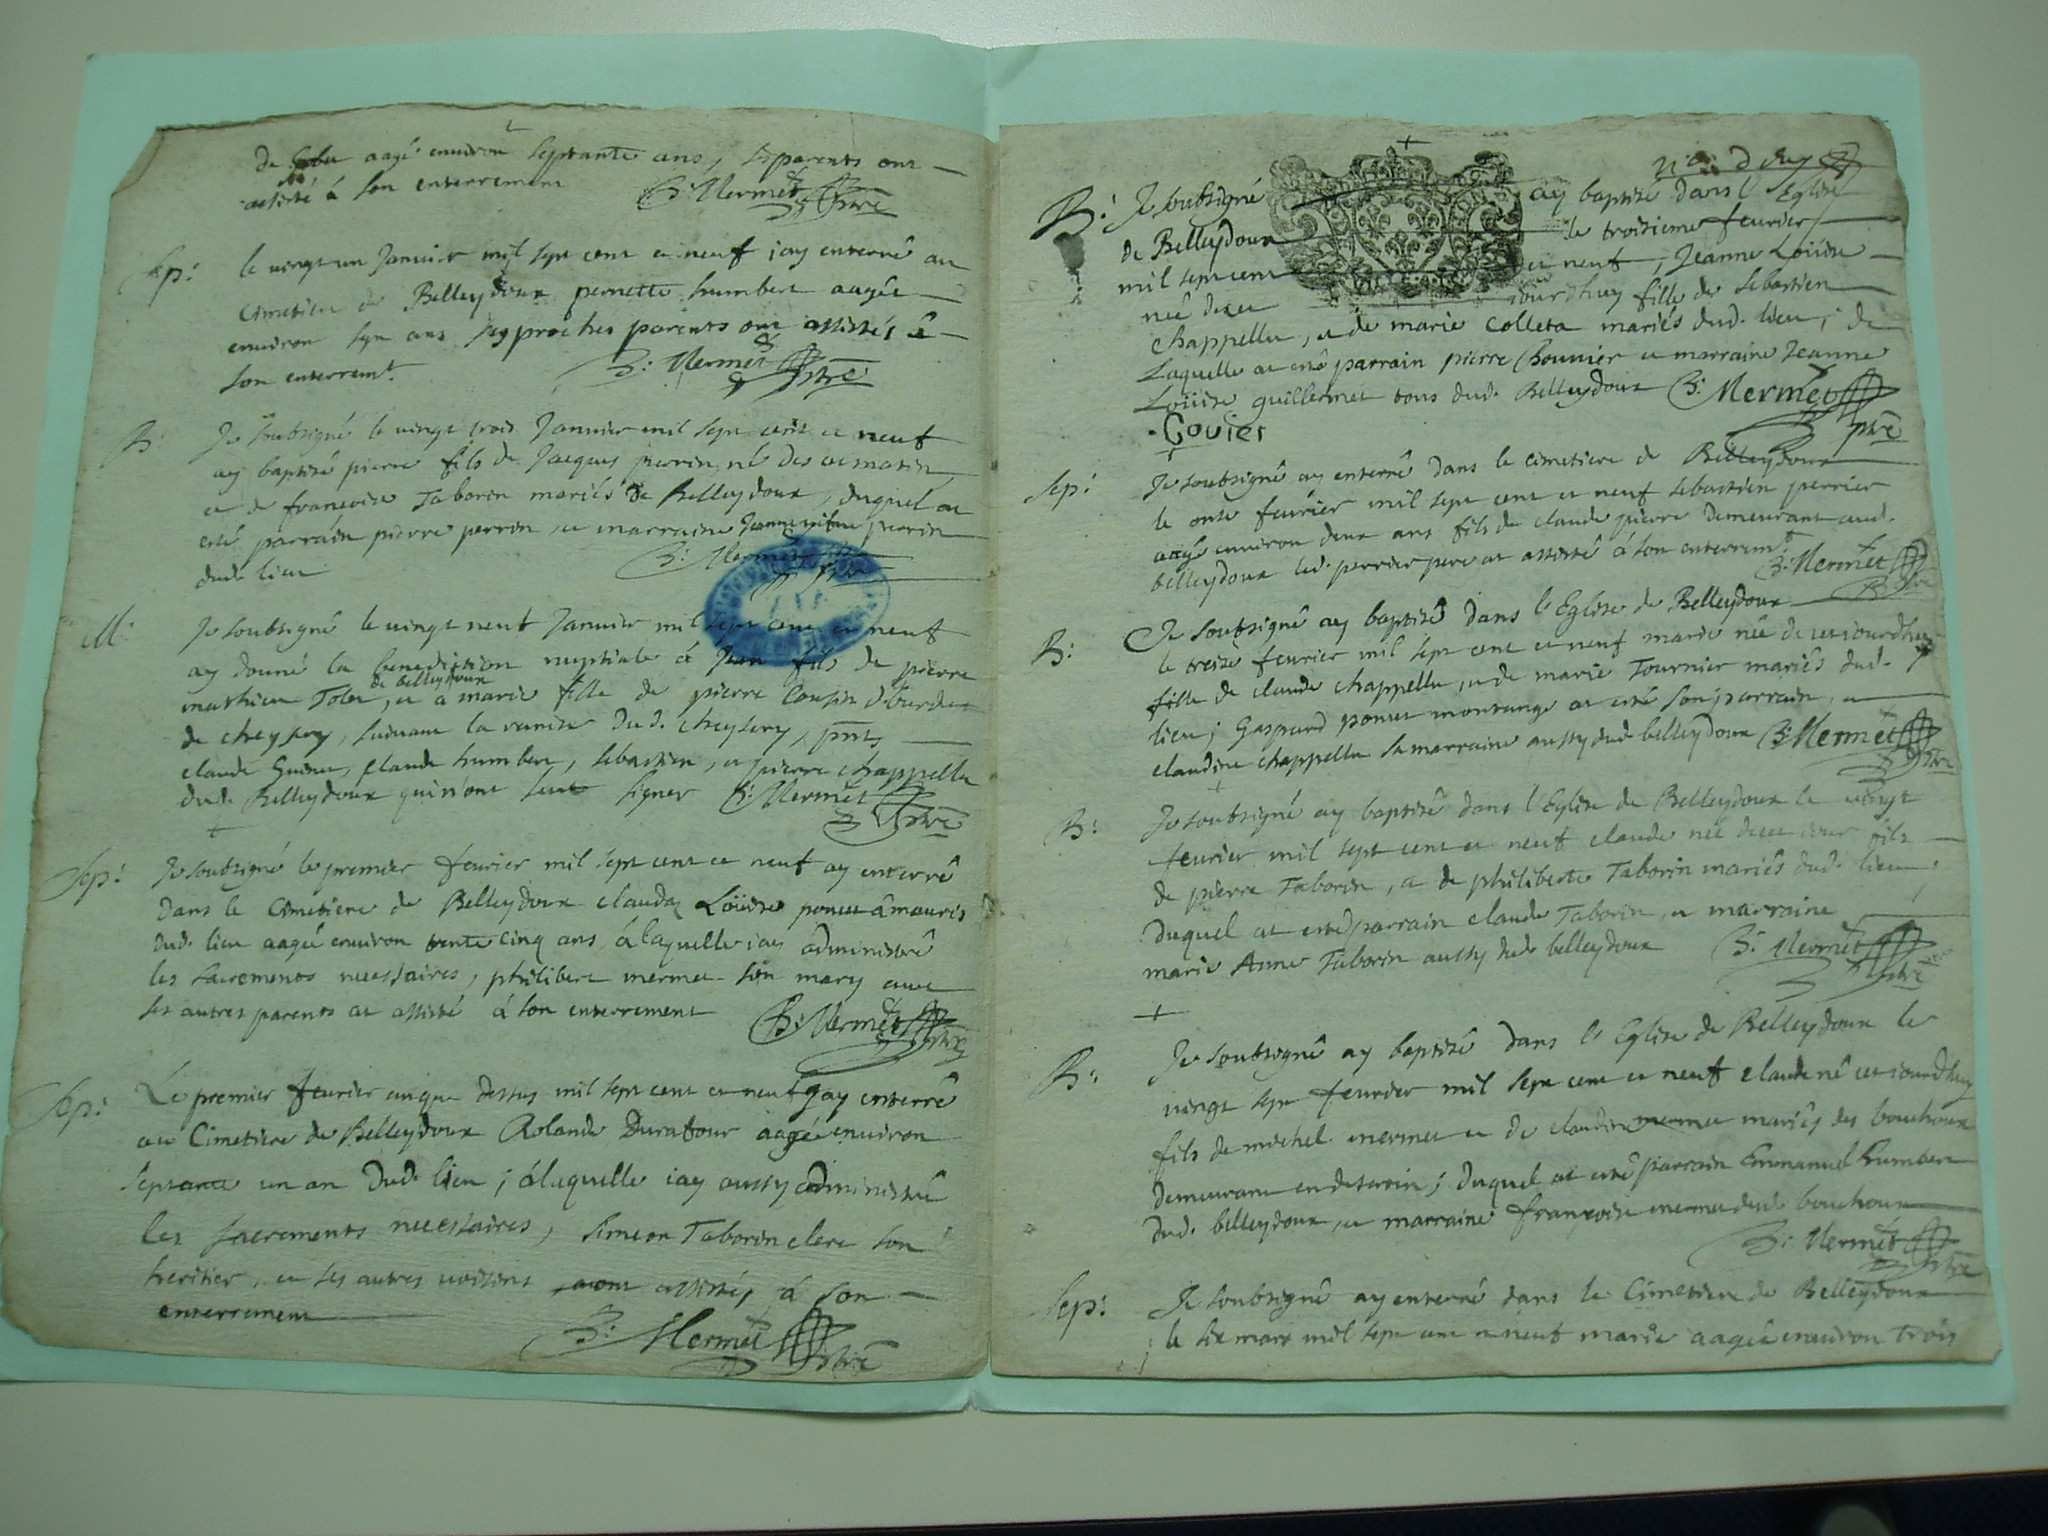 de aagé environ septante ans, ses parents ont
assisté à son enterrement B: Mermet ptre
Sep: le vingt un Janvier mil sept cent et neuf iay enterré au
Cimetiere de Belleydoux pernette humbert aagée
environ sept ans ses proches parents ont assistés à
son enterremt. B: Mermet ptre
B: Je soubsigné le vingt trois Janvier mil sept cent et neuf
ay baptisé pierre fils de Jacques perrin né des ce matin
et de francoise Taborin mariés de Belleydoux, duquel at
esté parrain pierre perrin, et marraine Jeanne perrin
dud. lieu B: Mermet ptre
M: Je soubsigné le vingt neuf Janvier mil sept cent et neuf
ay donné la benediction nuptiale à Jean fils de pierre
de belleydoux
mathieu Toler, et a marie fille de pierre Cousin
de cheysery, suivant la remise dud. cheysery, pnts
claude Guenet, Claude humbert, sebastien, et pierre chappellu
dud. Belleydoux qui n'ont sceut signer B: Mermet ptre
Sep: Je soubsigné le premier fevrier mil sept cent et neuf ay enterré
dans le Cimetiere de Belleydoux clauda Loüise poncet àmauris
dud. lieu aagée environ trente cinq ans, à laquelle iay administré
les sacrements necessaires, philibert mermet son mary avec
ses autres parents at assisté à son enterrement B: Mermet ptre
Sep: Le premier fevrier duque dessus mil sept cent et neuf Jay enterré
au Cimetiere de Belleydoux Rolande Durafour aagée environ
septante un an dud. lieu; à laquelle iay aussy administré
les sacrements necessaires, Simeon Taborin clerc son
heritier, et ses autres voisins ont assistés à son
enterrement
B: Mermet ptre
B: Je soubsigné ay baptisé dans l'Eglise
de Belleydoux le troisieme fevrier
mil sept cent et neuf, Jeanne Loüise
née de cet iourdhuy fille de Sebastien
chappellu, et de marie Colleta mariés dud. lieu; de
Laquelle at esté parrain pierre Chouvier et marraine Jeanne
Loüise guillermet tous dud. Belleydoux B: Mermet
Govier ptre
Sep: Je soubsigné ay enterré dans le cimetiere de Belleydoux
le onze fevrier mil sept cent et neuf sebastien perrier
aagé environ deux ans fils de claude pierre demeurant aud.
belleydoux led. perrier pere at assisté à son enterremt. B: Mermet ptre
B: Je soubsigné ay baptisé dans l'Eglise de Belleydoux
le treize fevrier mil sept cent et neuf marie née de cet iourdhuy
fille de claude chappellu, et de marie Tournier mariés dud.
lieu; Gaspard poncet montange at esté son parrain, et
claudine chappellu sa marraine aussy dud belleydoux B: Mermet ptre
B: Je soubsigné ay baptisé dans l'Eglise de Belleydoux le vingt
fevrier mil sept cent et neuf claude née de cet iour fils
de pierre Taborin, et de philiberte Taborin mariés dud. lieu;
duquel at esté parrain claude Taborin, et marraine
marie Anne Taborin aussy dud. belleydoux B: Mermet ptre
B: Je soubsigné ay baptisé dans l'Eglise de Belleydoux le
vingt sept fevrier mil sept cent et neuf claude né cet iourdhuy
fils de michel mermet et de claudine mermet mariés des bouchoux
demeurant en desertin; duquel at esté parrain Emmanuel humbert
dud. belleydoux, et marraine françoise mermet dud. bouchoux
B: Mermet ptre
Sep: Je soubsigné ay enterré dans le Cimetiere de Belleydoux
le six mars mil sept cent et neuf marie aagée environ trois